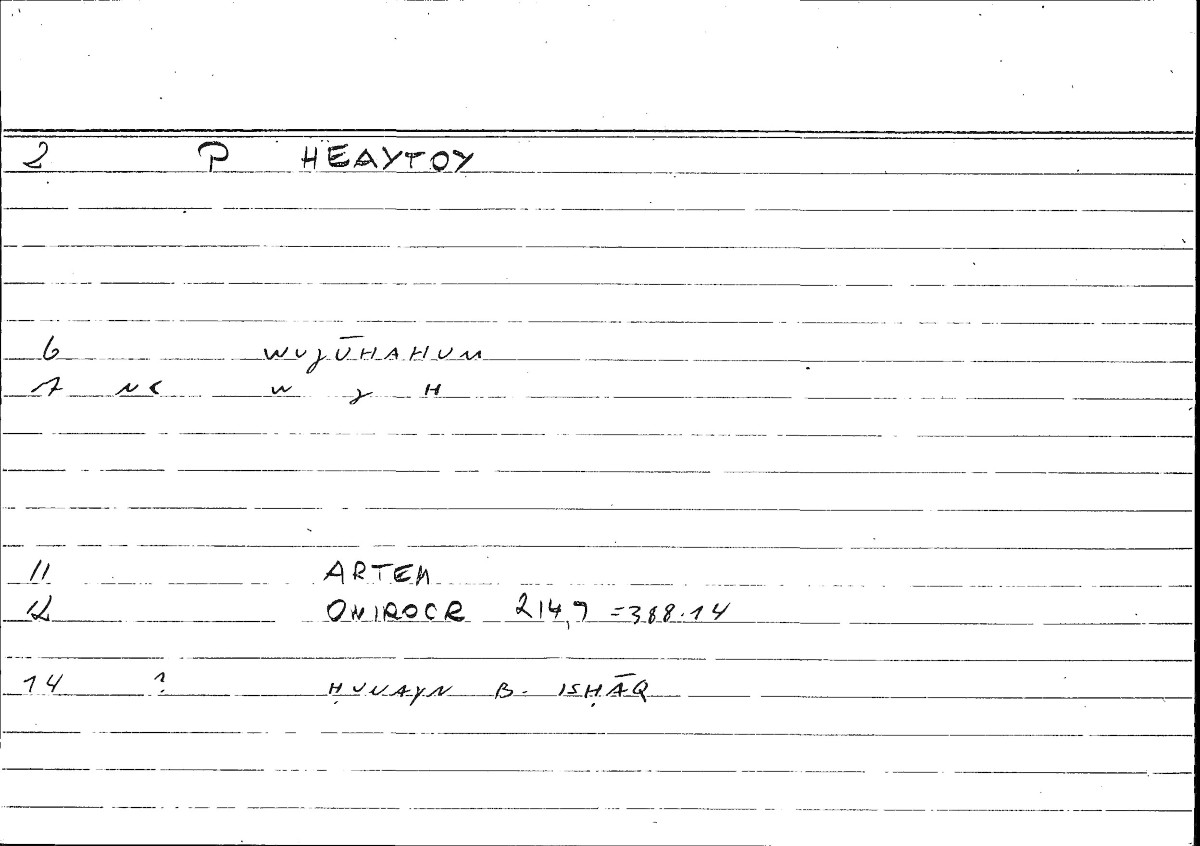 2 P HEAYTOY
6 WUJŪHAHUM
7 NC W J H
11 ARTEM
12 ONIROCR 214,9 =388.14
14 ? ḤUNAYN B. ISḤĀQ